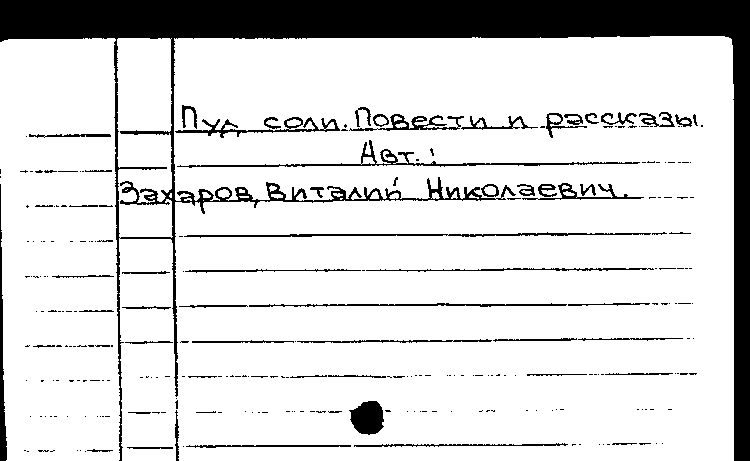 Пуд соли. Повести и рассказы.
Авт.:
Захаров, Виталий Николаевич.